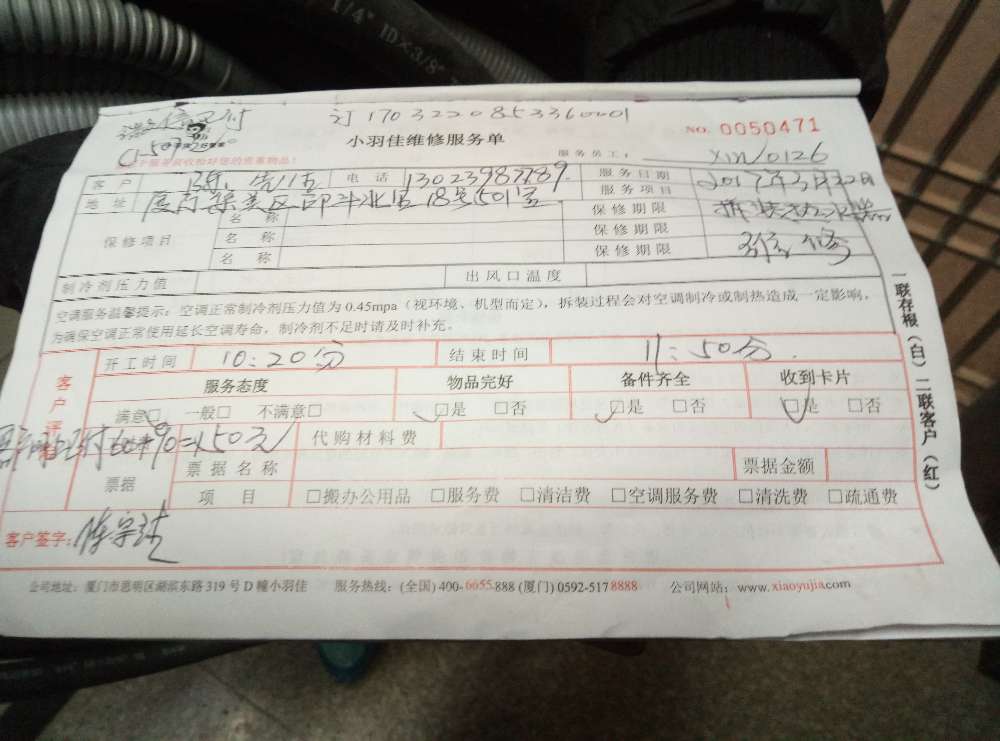 1/4" ID×3/8"
订1703220853360001
小羽佳维修服务单
NO. 0050471
服务员工： XIW0126
客户 陈先生 电话 13023987789 服务日期 2017年3月22日
地址 厦门 区 18号501室 服务项目
保修项目
名称 保修期限
名称 保修期限
名称 保修期限
制冷剂压力值 出风口温度
空调服务温馨提示：空调正常制冷剂压力值为0.45mpa（视环境、机型而定），拆装过程会对空调制冷或制热造成一定影响，
为确保空调正常使用延长空调寿命，制冷剂不足时请及时补充。
客户评价
开工时间 10：20分 结束时间 11：50分
服务态度 物品完好 备件齐全 收到卡片
满意□ 一般□ 不满意□ □是 □否 □是 □否 □是 □否
60+90=150元 代购材料费
票据 票据名称 票据金额
项目 □搬办公用品 □服务费 □清洁费 □空调服务费 □清洗费 □疏通费
客户签字：陈宗
一联存根（白）二联客户（红）
公司地址：厦门市思明区湖滨东路319号D幢小羽佳 服务热线：(全国) 400-6655-888 (厦门) 0592-5178888 公司网站：www.xiaoyujia.com